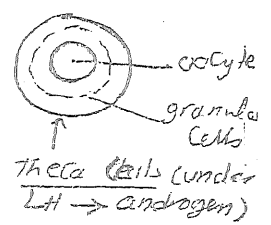 oocyte
granulosa
cells
Theca Cells (under
LH → androgen)